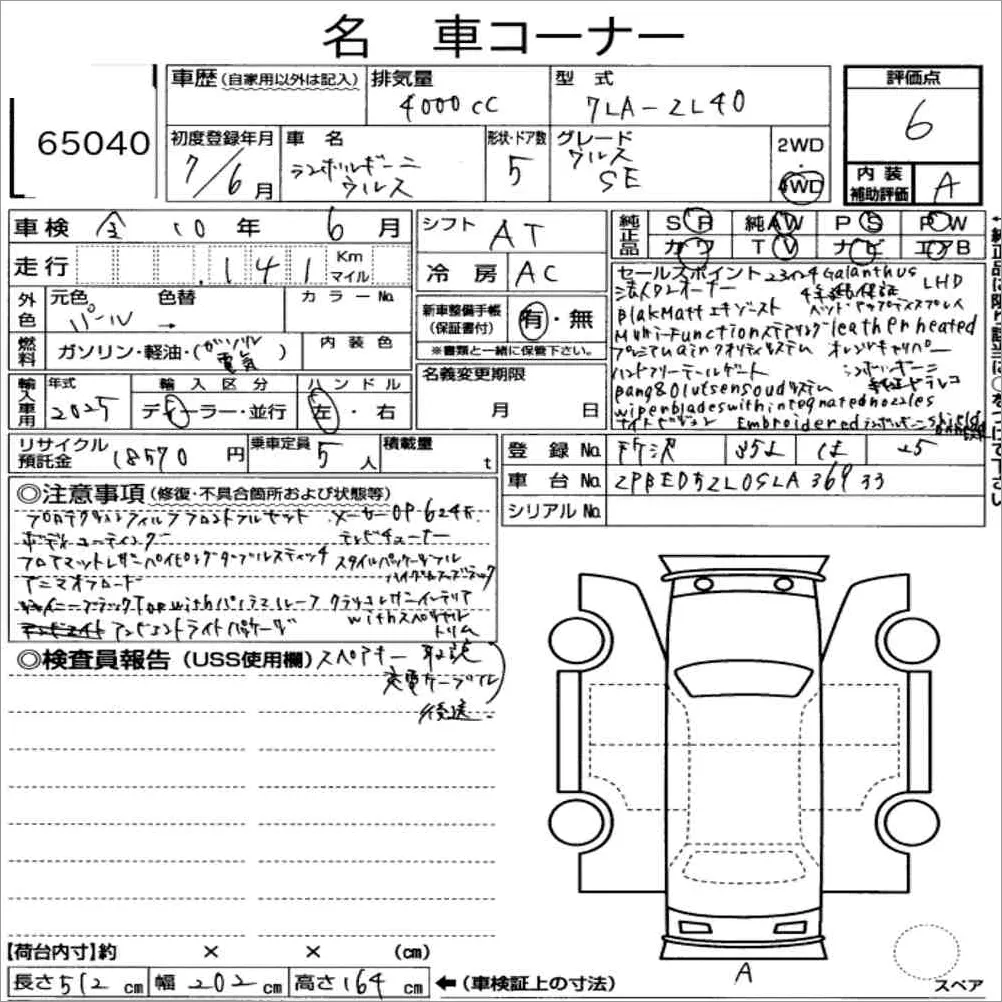 名 車コーナー
65040
車歴 (自家用以外は記入) 排気量 4000cc 型式 7LA-ZL40
評価点 6
初度登録年月 7/6月 車名 ランボルギーニ ウルス
形状・ドア数 5 グレード ウルス SE
2WD・4WD
内装補助評価 A
車検 10年 6月
シフト AT
純正品 SR 純AW PS PW
カワ TV ナビ エアB
走行 141 Km マイル
冷房 AC
外色 元色 パール 色替 → カラーNo.
新車整備手帳 (保証書付) 有・無
※書類と一緒に保管下さい。
燃料 ガソリン・軽油・(ガソリン 電気) 内装色
名義変更期限 月 日
輸入車用 年式 2025 輸入区分 ディーラー・並行 ハンドル 左・右
セールスポイント 23インチGalanthus LHD
法人ワンオーナー
BlakMatt エキゾースト ヘッドアップディスプレイ
Multi-Functionステアリング leather heated
プレミアムairクオリティシステム オレンジキャリパー
ハンドフリーテールゲート ランボルギーニ
Bang&Olufsensoudシステム 純正ドラレコ
wiperbladeswithintegnatednozzles
ナイトビジョン Embroidered ランボルギーニ shield
リサイクル預託金 18570円 乗車定員 5人 積載量 t
登録No. 所沢 35 は 25
車台No. ZPBED5ZL0SLA36933
シリアルNo.
◎注意事項 (修復・不具合箇所および状態等)
プロテクションフィルフフロントフルセット メーカーOP 624万
ボディコーティング テレビチューナー
フロアマットレザーパイピングダブルスティッチ スタイルパッケージフル
アニマオフロード ハイグロスブラック
シャイニーブラックTopwithパノラマルーフ クラッシコレザーインテリア
アンビエントライトパッケージ withスペシャル
トリム
◎検査員報告 (USS使用欄) スペアキー 取説
充電ケーブル
後送
【荷台内寸】約 × × (cm)
長さ 512 cm 幅 202 cm 高さ 164 cm ←(車検証上の寸法)
A
スペア